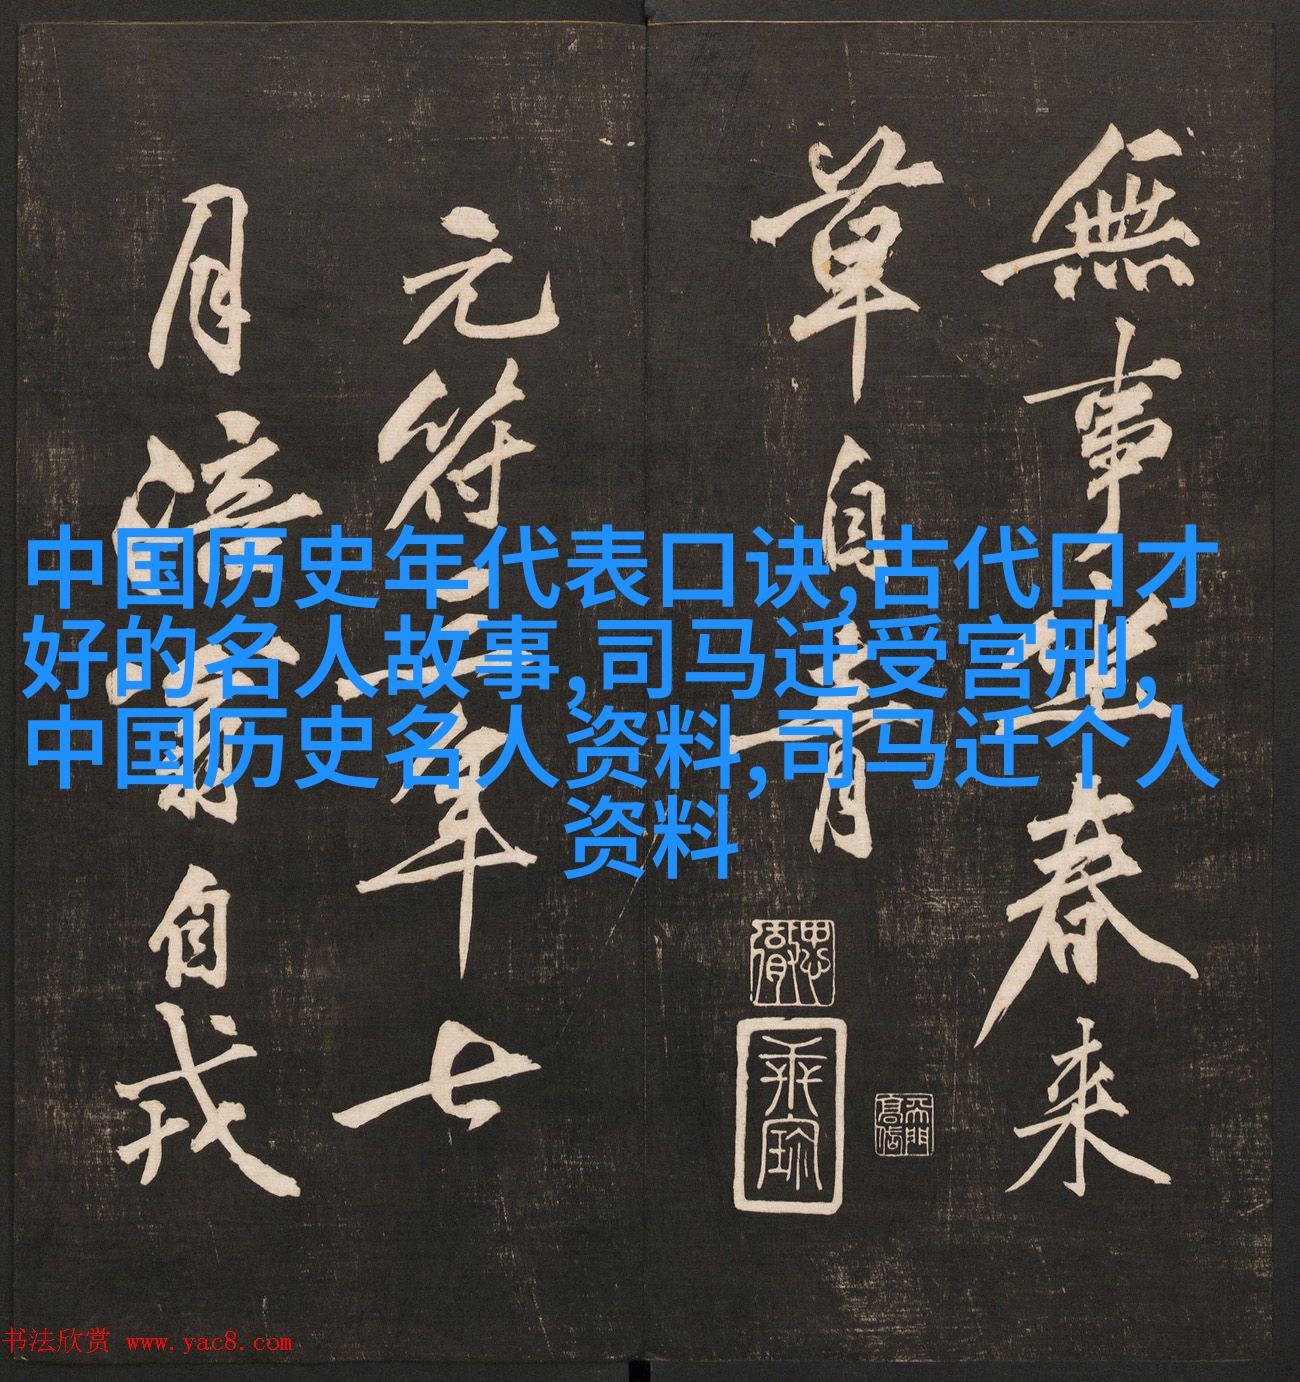 無事坐春来
草自青
元符三年七
月涪翁自戎
中国历史年代表口诀,古代口才
好的名人故事,司马迁受宫刑,
中国历史名人资料,司马迁个人
资料
书法欣赏 www.yac8.com